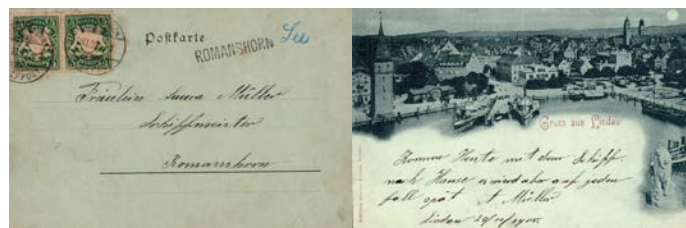 Postkarte
ROMANSHORN
See
Fräulein Laura Müller
Schiffmeister
Romanshorn
Gruss aus Lindau
Komme Heute mit dem Schiff
nach Hause es wird aber auf jeden
fall spät A Müller
Lindau